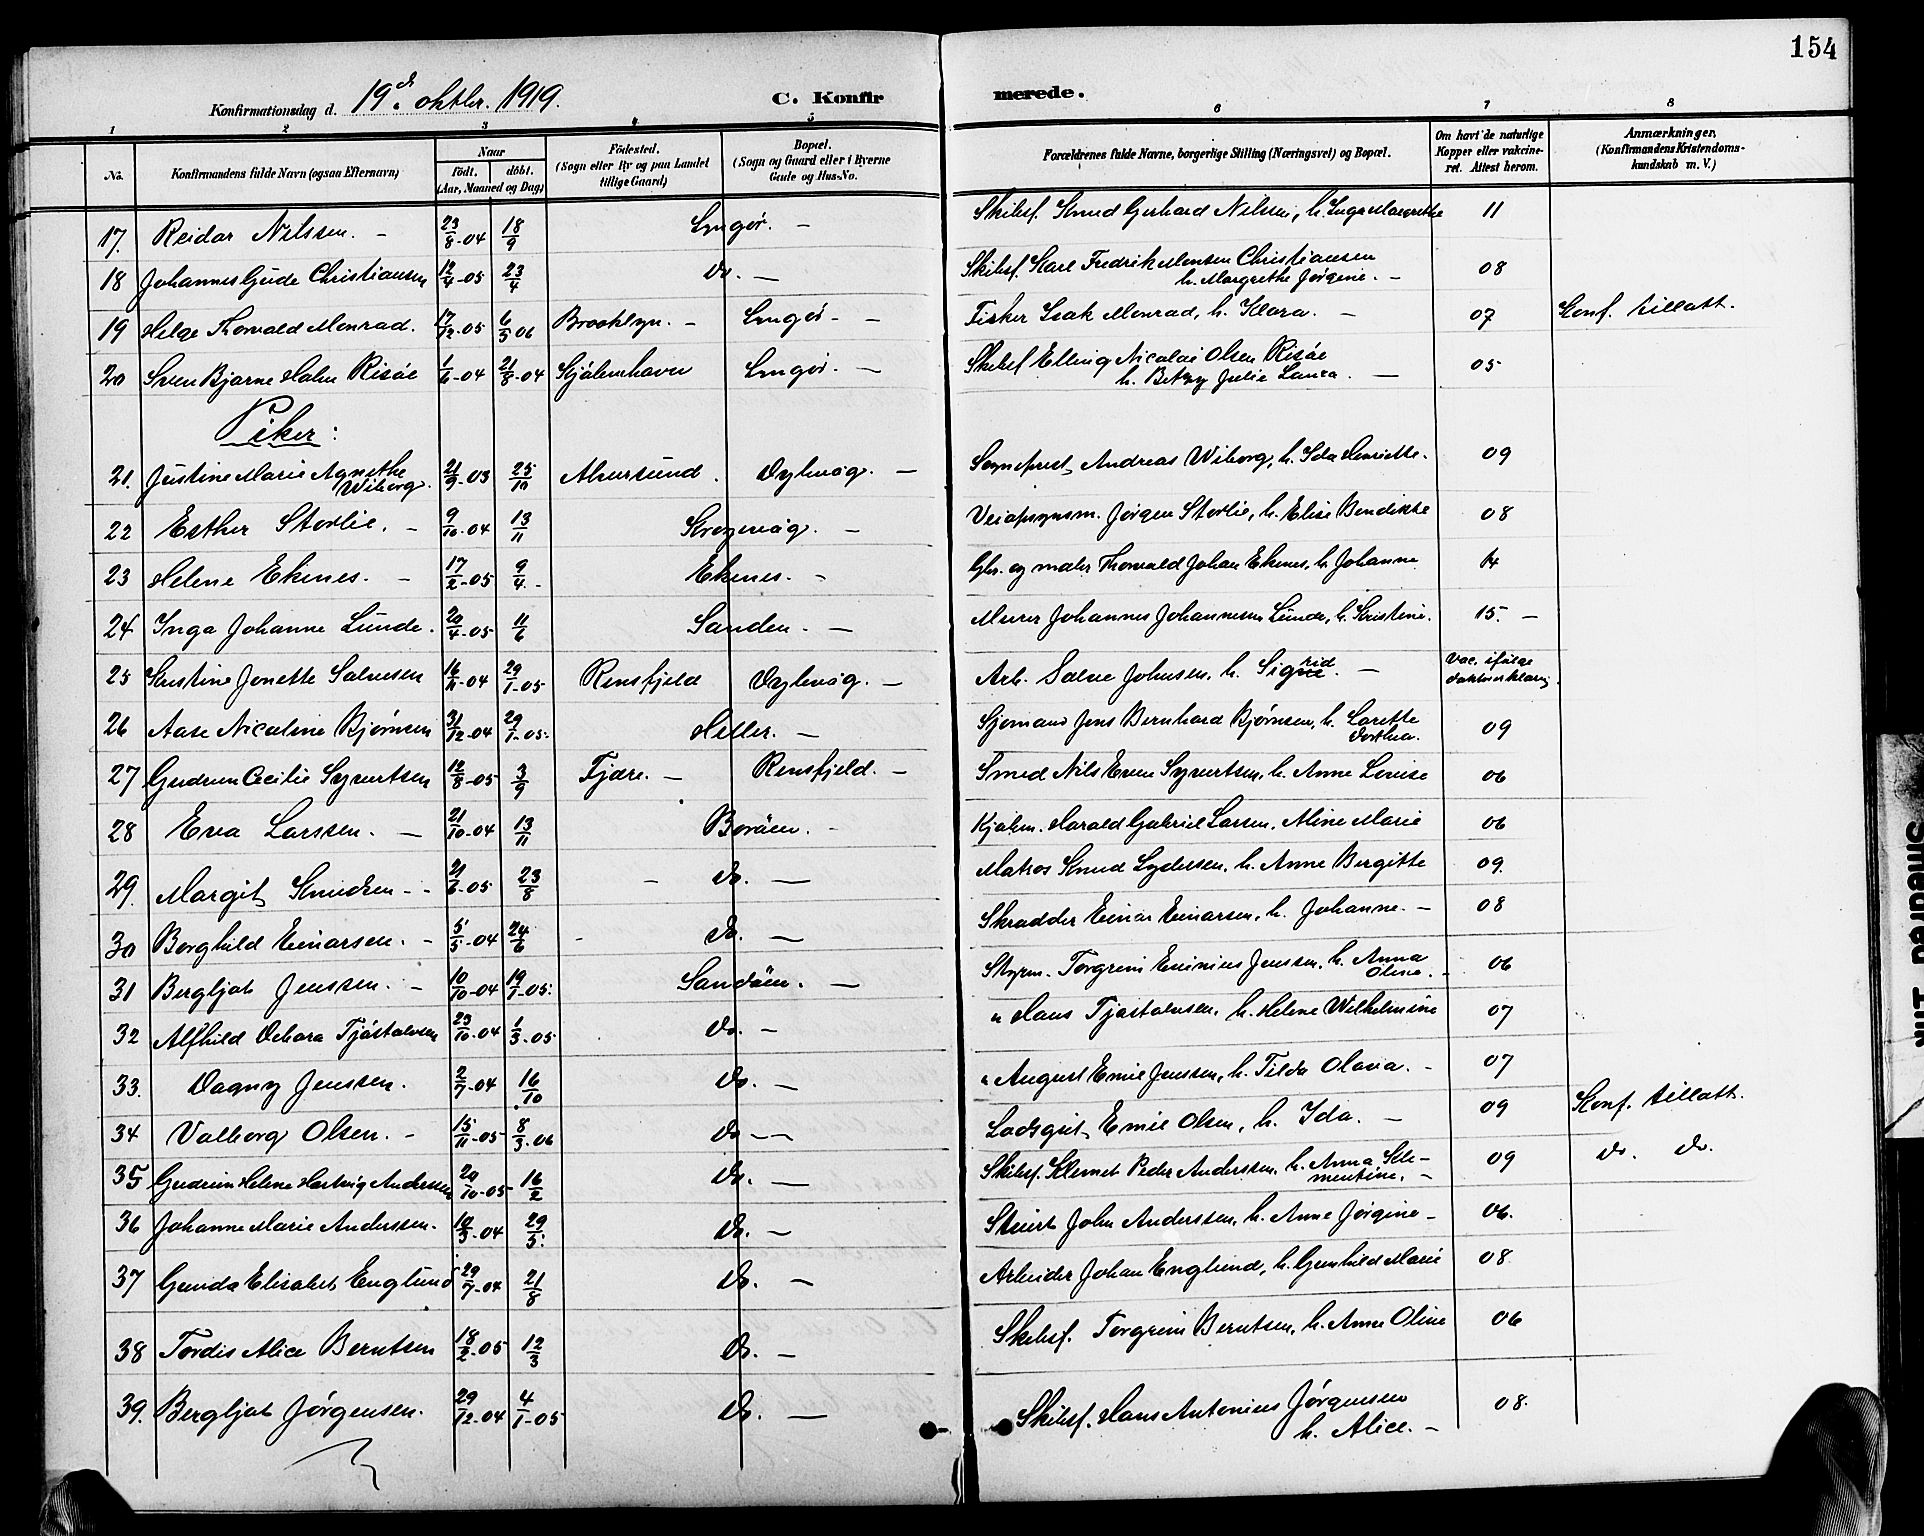 154
Konfirmationsdag d. 19d. oktbr. 1919. C. Konfirmerede.
1 2 3 4 5 6 7 8
No. Konfirmandens fulde Navn (ogsaa Efternavn) Naar Födt. döbt. (Aar, Maaned og Dag) Födested. (Sogn eller By og paa Landet tillige Gaard) Bopæl. (Sogn og Gaard eller i Byerne Gade og Hus-No. Forældrenes fulde Navne, borgerlige Stilling (Næringsvei) og Bopæl. Om havt de naturlige Kopper eller vakcineret. Attest herom. Anmærkninger, (Konfirmandens Kristendomskundskab m. V.)
17. Reidar Nilssen. - 23/8-04 18/9 Lyngör. - Skibsf. Knud Gerhard Nilssen, h. Inga Margrethe 11
18 Johannes Gude Christiansen 12/4-05 23/4 do. - Skibsf. Karl Fredrik Monsen Christiansen h. Margrethe Jørgine. - 08
19 Helge Thorvald Monrad. 17/12-05 6/5 06 Brooklyn. - Lyngör - - Fisker Isak Monrad, h. Klara. - 07 Konf. tillatt.
20 Sven Bjarne Holm Risöe 1/6-04 21/8-04 Kjöbenhavn Lyngör. - Skibsf Elling Nicolai Olsen Risöe h. Betzy Julie Laura. - 05
Piker:
21. Justine Marie Agnethe Wiborg. 21/9-03 25/10 Alversund. Dybvåg. - Sogneprest Andreas Wiborg, h. Ida Henriette. 09
22 Esther Storlie. - 9/10-04 13/11 Krogvåg. - Veiopsynsm. Jørgen Storlie, h. Elise Bendikte 08
23 Helene Ekenes. - 17/2-05 9/4 - Ekenes. - Gbr. og maler Thorvald Johan Ekenes, h. Johanne 14
24 Inga Johanne Lunde. 20/4-05 11/6 Sanden. - Murer Johannes Johannesen Lunde, h. Kristine. 15. -
25 Kristine Jonette Salvesen 16/11-04 29/1-05 Rensfjeld Dybvåg. - Arb. Salve Johnsen, h. Sigrid. - Vac. ifölge doktorerklæring.
26 Aase Nicoline Bjørnsen 31/12-04 29/1-05. Heller. - Sjømand Jens Bernhard Bjørnsen, h. Lorette Dorthea. 09
27 Gudrun Cecilie Syvertsen 12/8-05 3/9 Fjære. - Rensfjeld. - Smed Nils Even Syvertsen, h. Anne Lovise 06
28 Eva Larssen. - 21/10-04 13/11 Boröen. - Kjøbm. Harald Gabriel Larsen, Aline Marie 06
29. Margit Knudsen - - 21/6-05 23/8 - do. - Matros Knud Lydersen, h. Anne Bergitte 09.
30 Borghild Einarsen. - 5/5-04 24/6 - do. - Skrædder Einar Einarsen, h. Johanne. - 08
31 Bergljot Jenssen. - 10/10-04 19/1-05. Sandöen. - Styrm. Torgrim Eninius Jenssen, h. Anna Oline. - 06
32 Alfhild Debora Tjöstolvsen 23/10-04 1/3-05 do. - " Hans Tjøstolvsen, h. Helene Wilhelmine 07
33. Dagny Jenssen. 2/7-04 16/10 do. - " August Emil Jenssen, h. Tilda Olava. - 07
34 Valborg Olsen. - 15/11-05 8/3-06 do - - Lodsgut Emil Olsen, h. Ida. - 09 Konf. tillatt.
35 Gudrun Helene Hartvig Anderssen 20/10-05 16/2 do. - Skibsf. Klemet Peder Anderssen, h. Anna Klementine. - 09 do. do.
36 Johanne Marie Anderssen. 10/3-04 29/5. do. - Stuert John Anderssen, h. Anne Jørgine - 06.
37 Gunda Elisabet Englund 29/7-04 21/8 do. - Arbeider Johan Englund, h. Gunhild Marie 08.
38 Tordis Alice Berntsen 18/2-05 12/3 do. - Skibsf. Torgrim Berntsen, h. Anne Oline 06
39. Bergljot Jørgensen. 29/12-04 4/1-05 do. - Skibsf. Hans Antonius Jörgensen h. Alice. - 08.